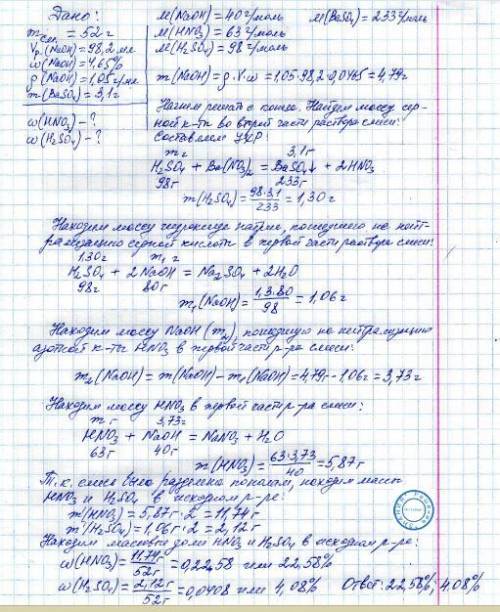 Дано:
mсм. = 52 г
Vр.(NaOH) = 98,2 мл
ω(NaOH) = 4,65%
ρ(NaOH) = 1,05 г/мл
m(BaSO₄) = 3,1 г
ω(HNO₃) - ?
ω(H₂SO₄) - ?
M(NaOH) = 40 г/моль M(BaSO₄) = 233 г/моль
M(HNO₃) = 63 г/моль
M(H₂SO₄) = 98 г/моль
m(NaOH) = ρ·V·ω = 1,05·98,2·0,0465 = 4,79 г
Начнем решать с конца. Найдем массу сер-
ной к-ты во второй части раствора смеси:
Составляем УХР:
m г 3,1 г
H₂SO₄ + Ba(NO₃)₂ = BaSO₄↓ + 2HNO₃
98 г 233 г
m(H₂SO₄) = 98·3,1 / 233 = 1,30 г
Находим массу гидроксида натрия, пошедшего на нейт-
рализацию серной кислоты в первой части раствора смеси:
1,30 г m₁ г
H₂SO₄ + 2NaOH = Na₂SO₄ + 2H₂O
98 г 80 г
m₁(NaOH) = 1,3·80 / 98 = 1,06 г
Находим массу NaOH (m₂), пошедшую на нейтрализацию
азотной к-ты HNO₃ в первой части р-ра смеси:
m₂(NaOH) = m(NaOH) - m₁(NaOH) = 4,79 - 1,06 г = 3,73 г
Находим массу HNO₃ в первой части р-ра смеси:
m г 3,73 г
HNO₃ + NaOH = NaNO₃ + H₂O
63 г 40 г
m(HNO₃) = 63·3,73 / 40 = 5,87 г
Т.к. смесь была разделена пополам, находим массы
HNO₃ и H₂SO₄ в исходном р-ре:
m'(HNO₃) = 5,87 г·2 = 11,74 г
m'(H₂SO₄) = 1,06 г·2 = 2,12 г
Находим массовые доли HNO₃ и H₂SO₄ в исходном р-ре:
ω(HNO₃) = 11,74 / 52 г = 0,2258 или 22,58%
ω(H₂SO₄) = 2,12 г / 52 г = 0,0408 или 4,08% Ответ: 22,58%; 4,08%